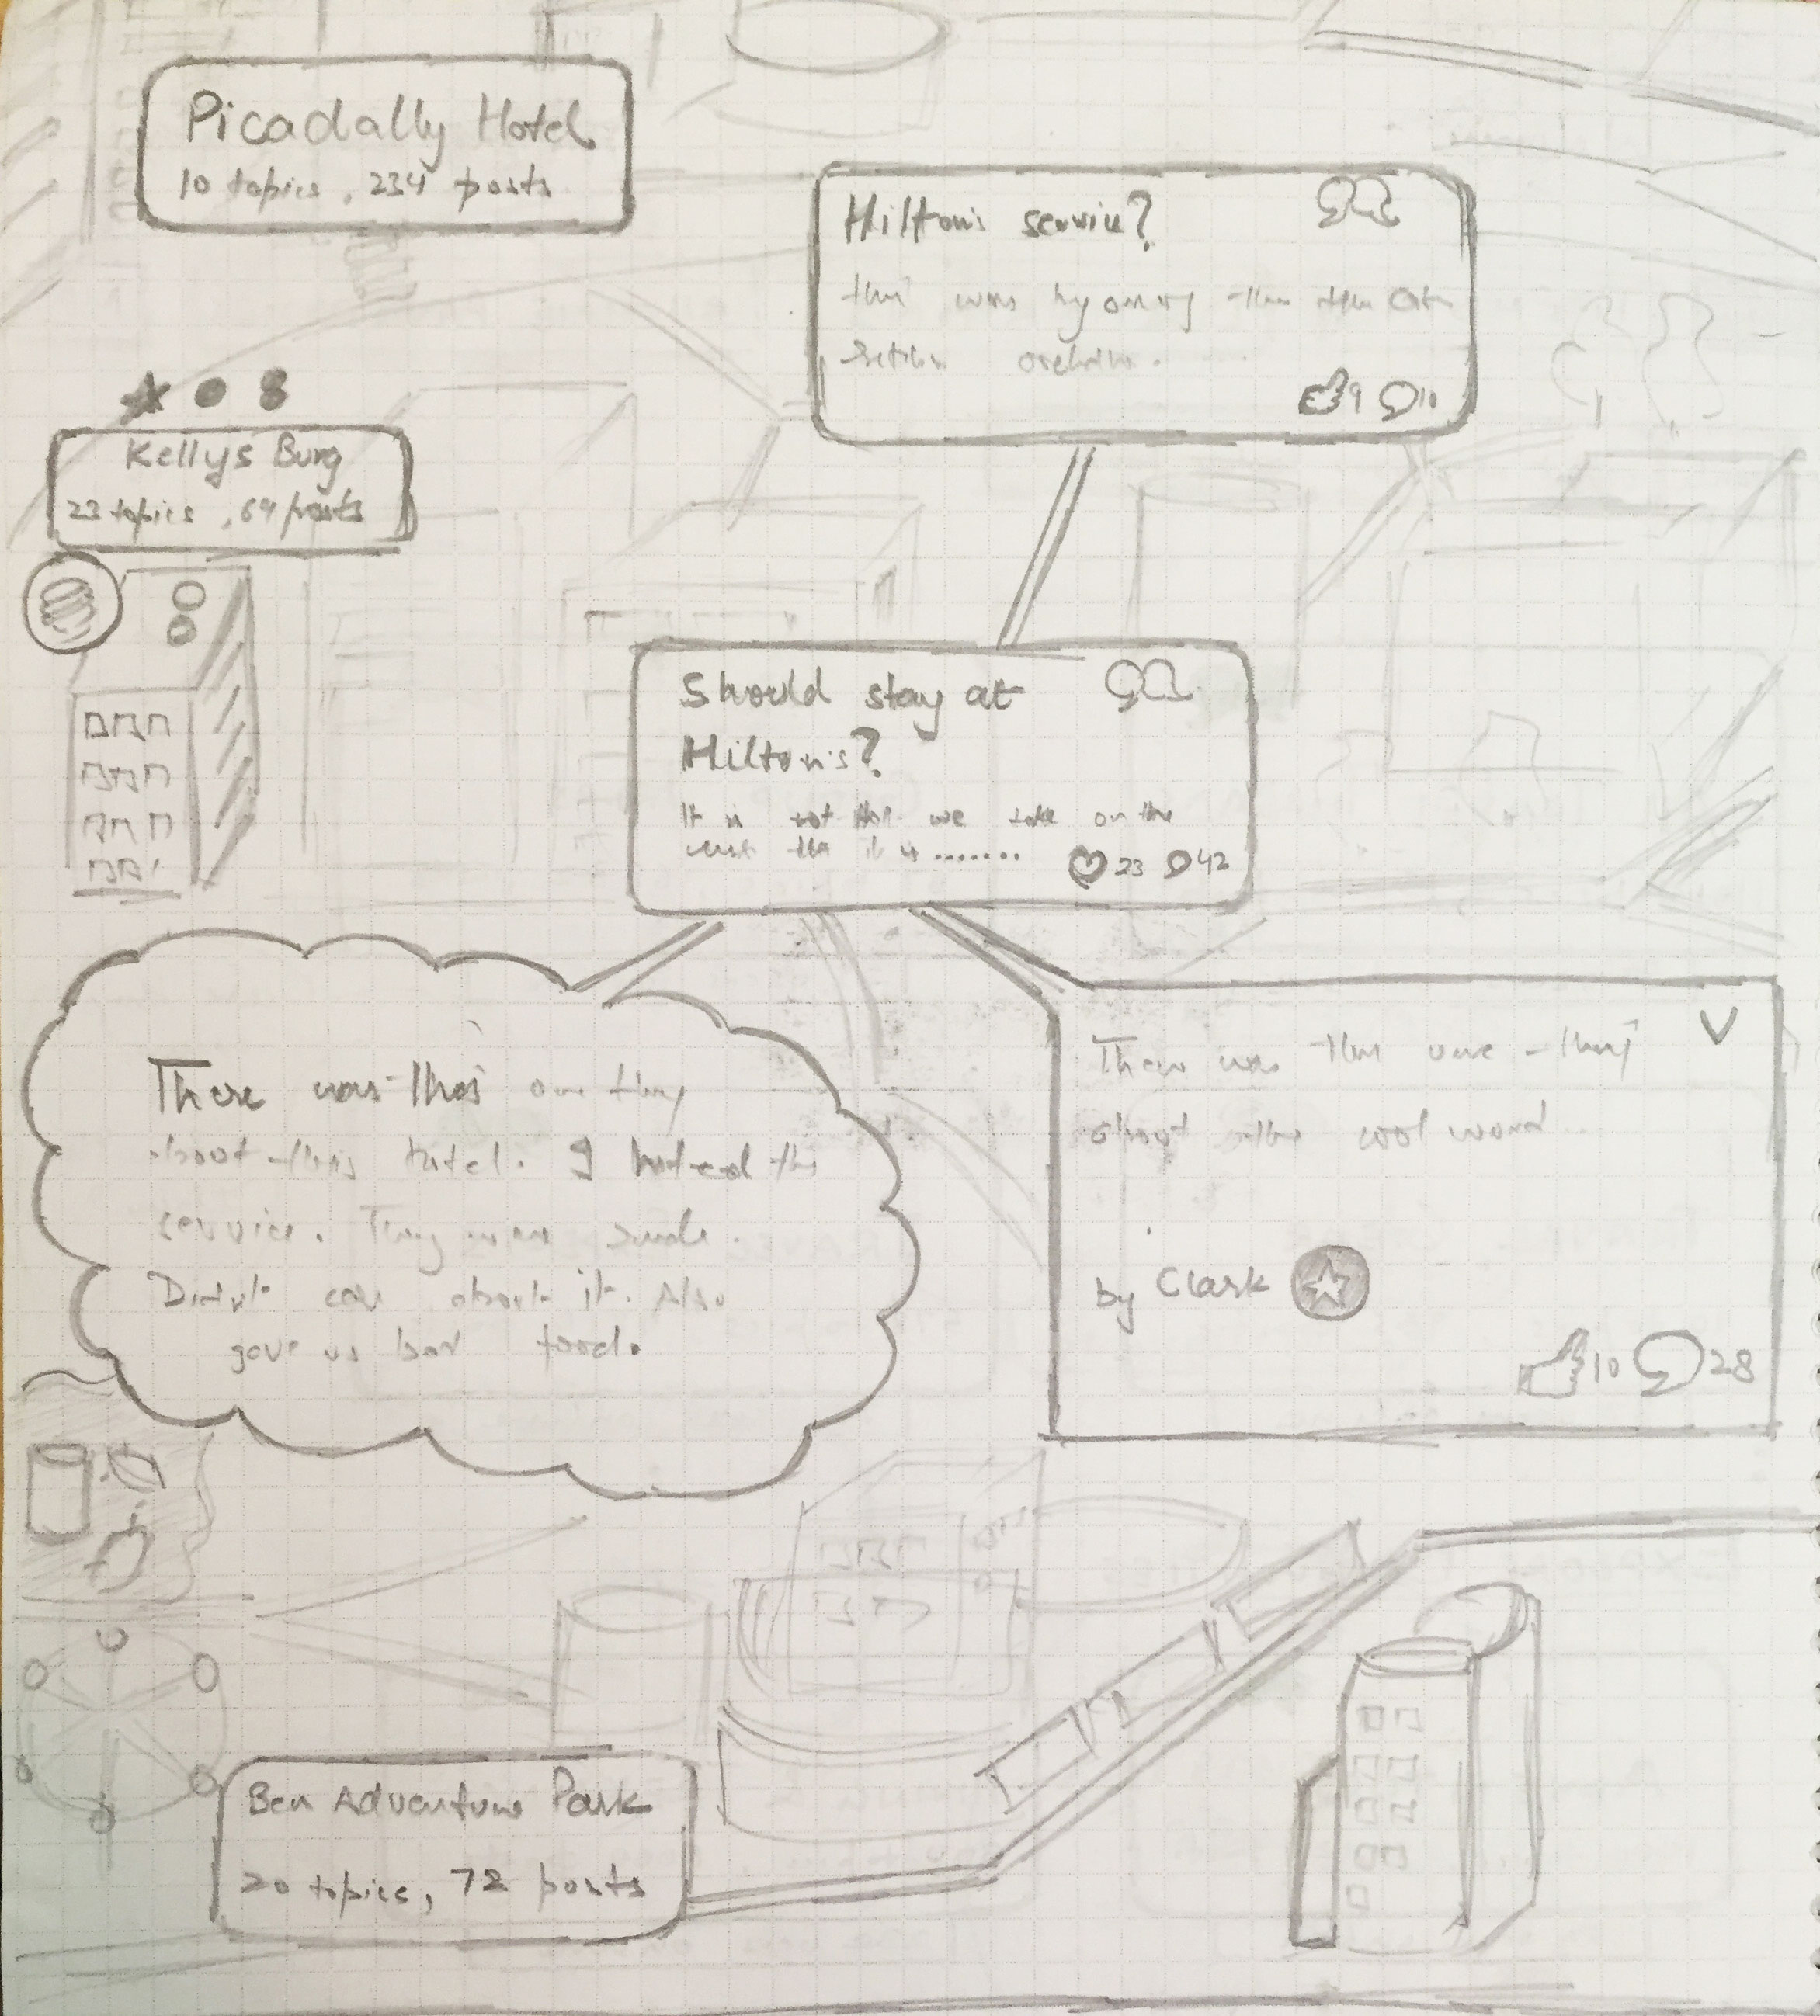 Picadally Hotel
10 topics, 234 posts
Hilton's service?
9 10
Kellys Burg
23 topics, 69 posts
Should stay at
Hilton's?
It is not that we take on the
23 42
There was this one thing
about this hotel. I hated the
service. They were rude.
Didn't care about it. Also
gave us bad food.
There was this one thing
about the cool word
by Clark
10 28
Ben Adventure Park
20 topics, 72 posts